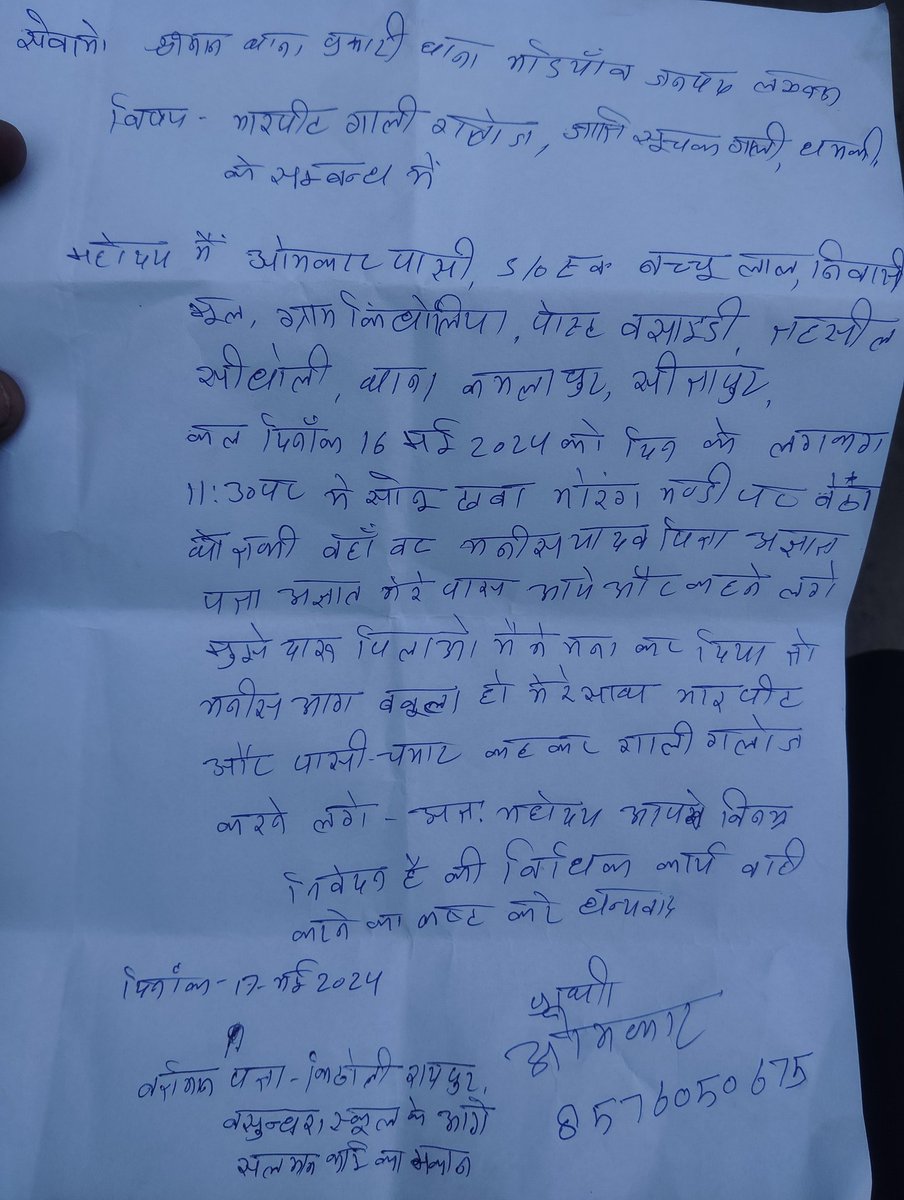 सेवामे। श्रीमान थाना प्रभारी थाना मडियाँव जनपद लखनऊ
विषय - मारपीट गाली गलोज, जाति सूचक गाली, धमकी,
के सम्बन्ध में
महोदय मैं ओमकार पासी, S/O बच्चू लाल, निवासी
मूल, ग्राम पोस्ट तहसील
सीधोली, थाना कमलापुर, सीतापुर,
कल दिनाँक 16 मई 2024 को दिन के लगभग
11:30 पर मे सोनू ढाबा मोरंग मण्डी पर बैठा
था तभी वहाँ पर मनीस यादव पिता अज्ञात
पता अज्ञात मेरे पास आये और कहने लगे
मुझे दारू पिलाओ। मैने मना कर दिया तो
मनीस आग बबूला हो मेरे साथ मारपीट
और पासी-चमार कहकर गाली गलोज
करने लगे - अतः महोदय आपसे विनम्र
निवेदन है की विधिक कार्य वाही
करने का कष्ट करे धन्यवाद
दिनाँक - 17 - मई 2024
प्रार्थी
ओमकार
8576050675
वर्तमान पता - रायपुर,
वसुन्धरा स्कूल के आगे
सलमान भाई का मकान